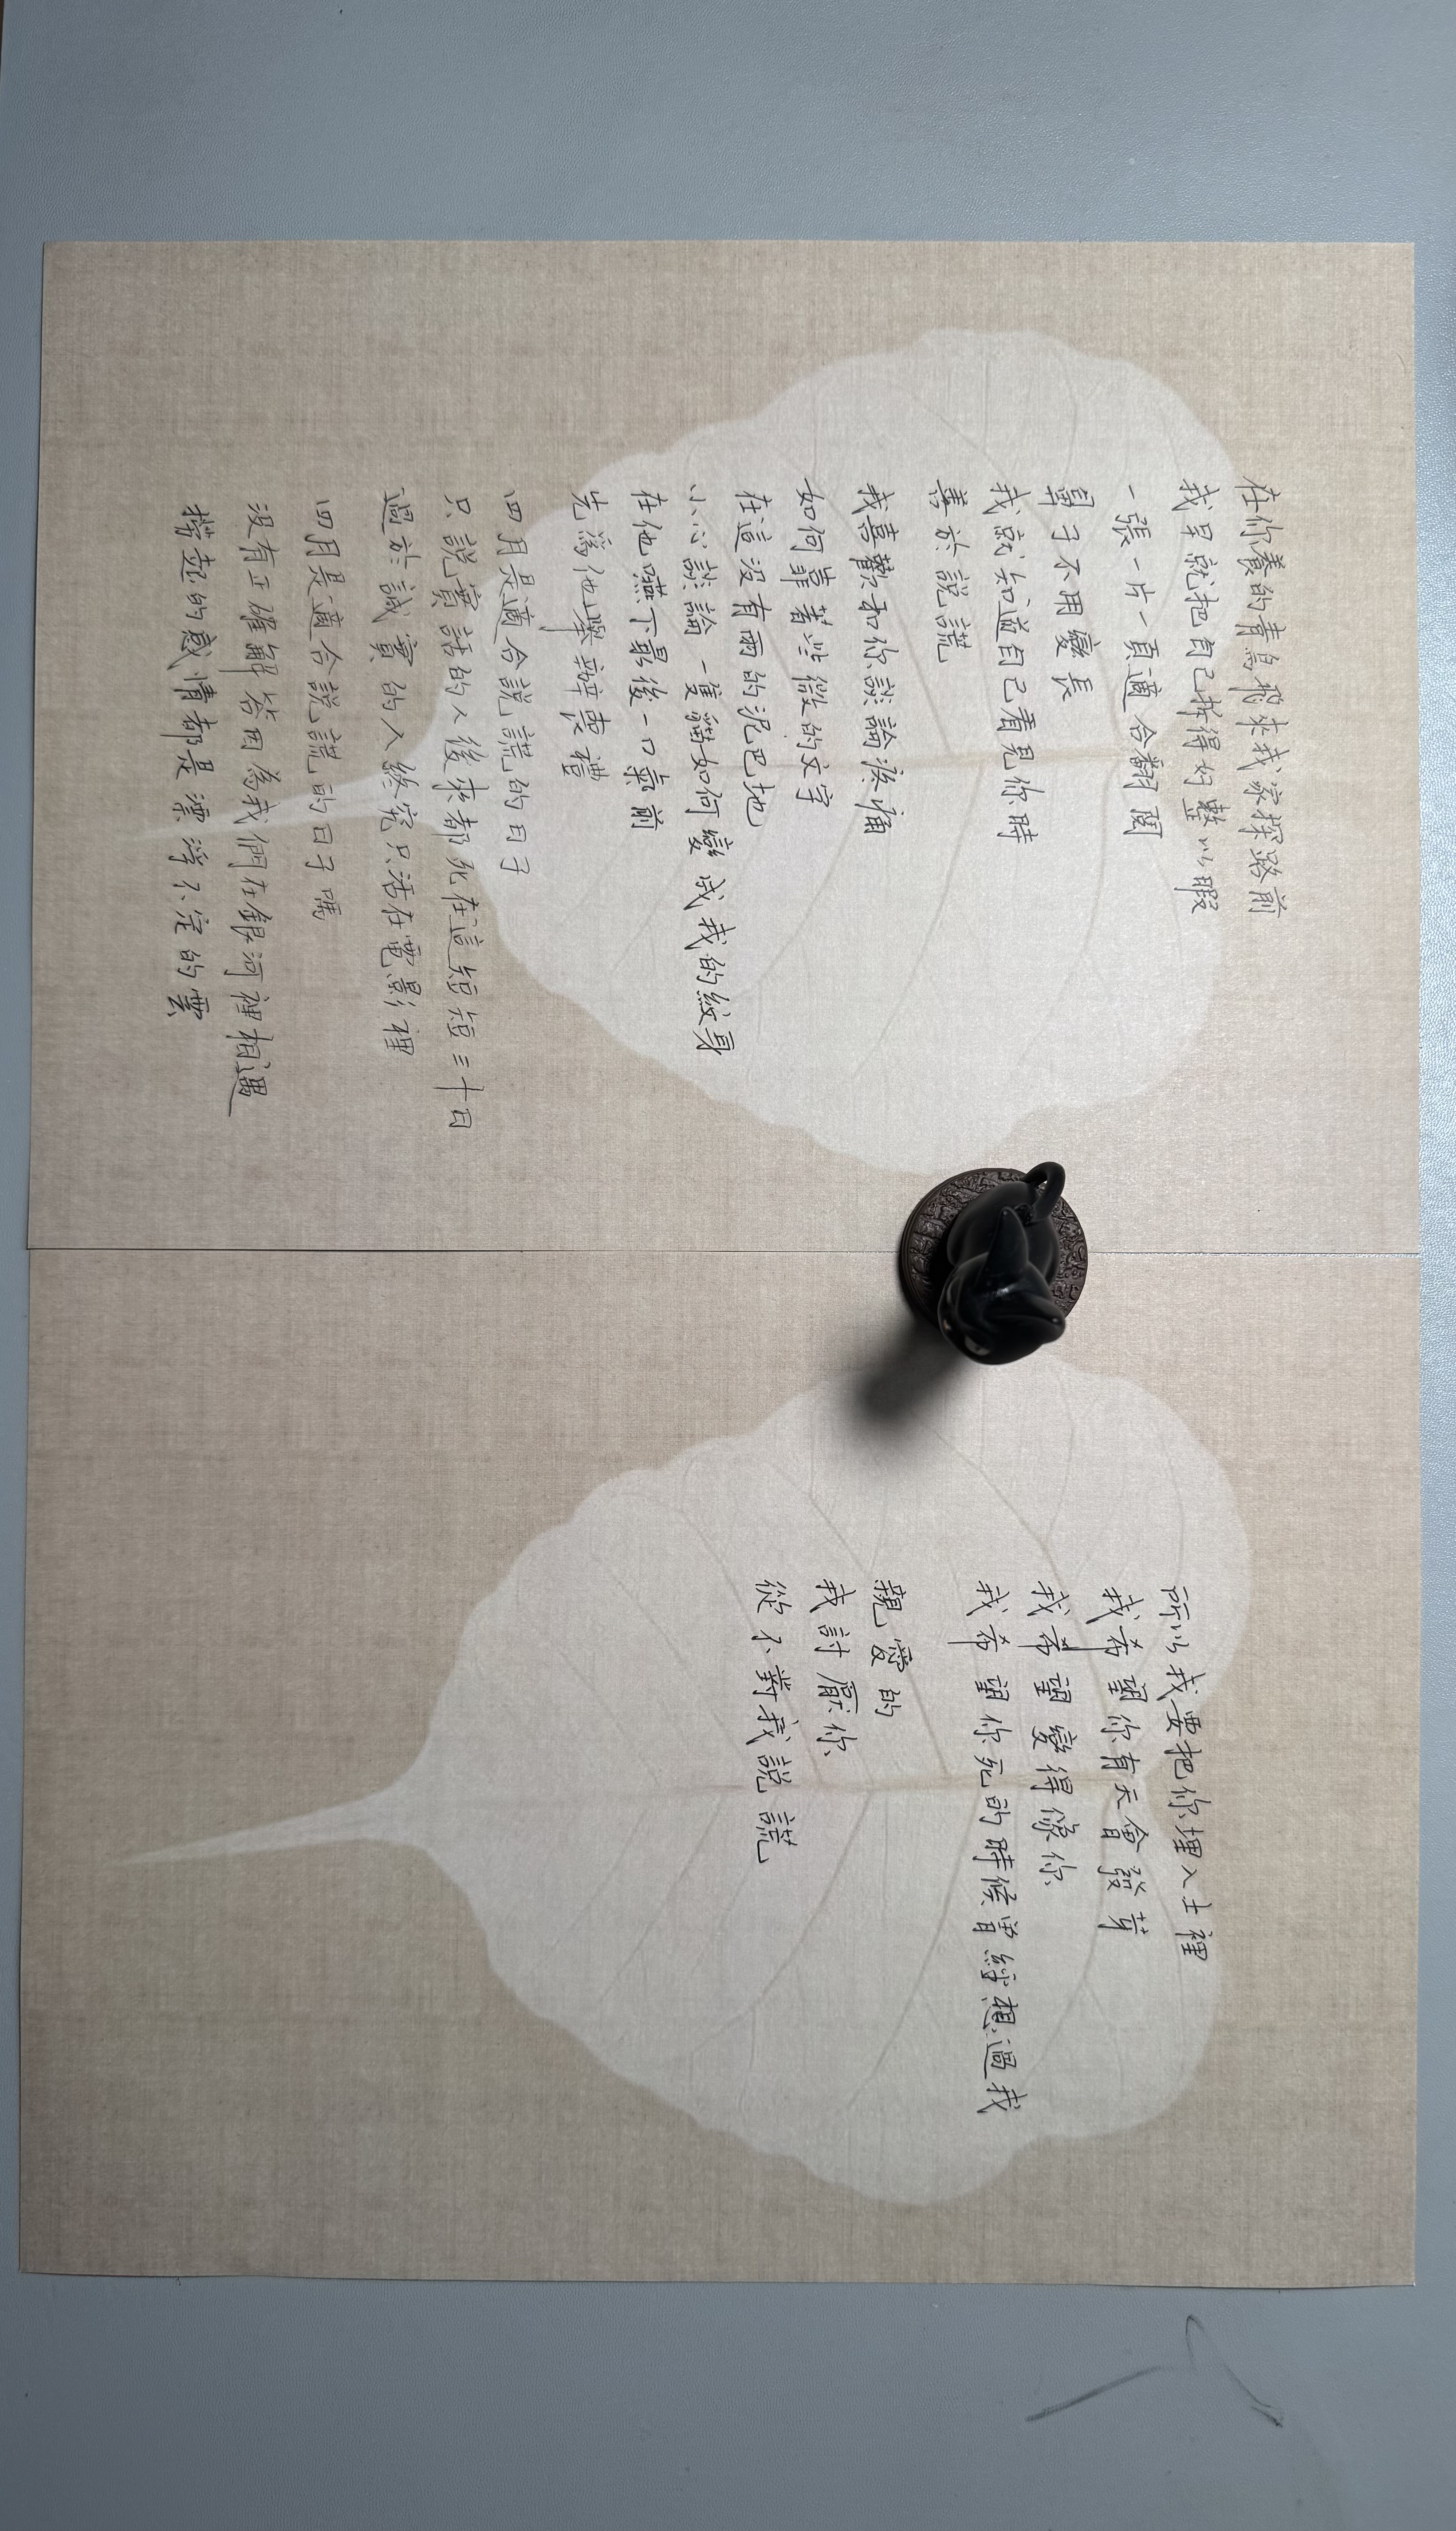 在你養的青鳥飛來我家探路前
我早就把自己拆得好整以暇
一張一片一頁適合翻閱
鼻子不用變長
我就知道自己看見你時
善於說謊
我喜歡和你談論疼痛
如何靠著些微的文字
在這沒有雨的泥巴地
小心談論一隻貓如何變成我的紋身
在他嚥下最後一口氣前
先為他舉辦喪禮
四月是適合說謊的日子
只說實話的人後來都死在這短短三十日
過於誠實的人終究只活在電影裡
四月是適合說謊的日子嗎
沒有正確解答因為我們在銀河裡相遇
撈起的感情都是漂浮不定的雲
所以我要把你埋入土裡
我希望你有天會發芽
我希望變得像你
我希望你死的時候曾經想過我
親愛的
我討厭你
從不對我說謊